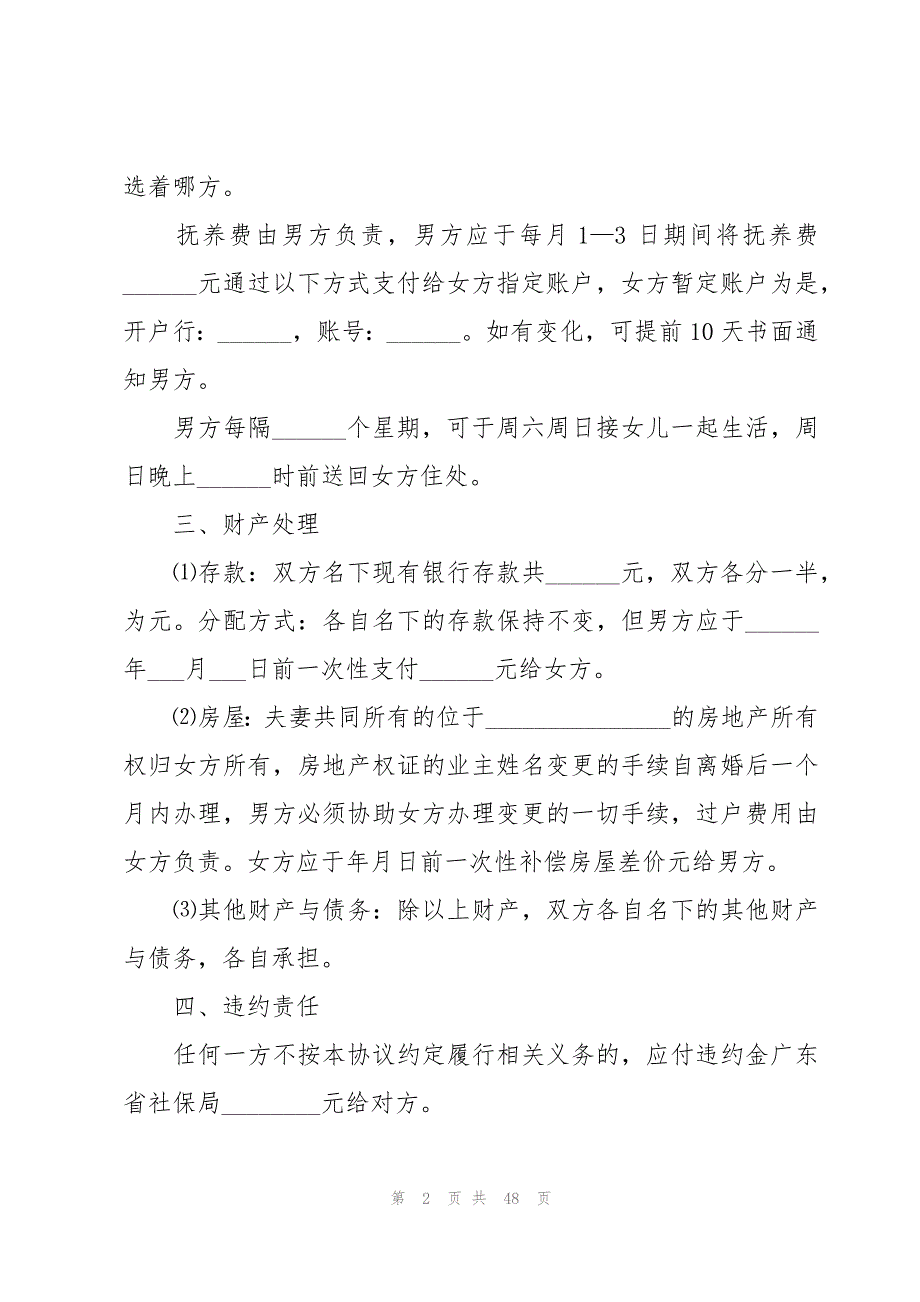 选着哪方。
抚养费由男方负责，男方应于每月 1—3 日期间将抚养费
______元通过以下方式支付给女方指定账户，女方暂定账户为是，
开户行：______，账号：______。如有变化，可提前 10 天书面通
知男方。
男方每隔______个星期，可于周六周日接女儿一起生活，周
日晚上______时前送回女方住处。
三、财产处理
⑴存款：双方名下现有银行存款共______元，双方各分一半，
为元。分配方式：各自名下的存款保持不变，但男方应于______
年___月___日前一次性支付______元给女方。
⑵房屋：夫妻共同所有的位于_______________的房地产所有
权归女方所有，房地产权证的业主姓名变更的手续自离婚后一个
月内办理，男方必须协助女方办理变更的一切手续，过户费用由
女方负责。女方应于年月日前一次性补偿房屋差价元给男方。
⑶其他财产与债务：除以上财产，双方各自名下的其他财产
与债务，各自承担。
四、违约责任
任何一方不按本协议约定履行相关义务的，应付违约金广东
省社保局________元给对方。
第 2 页 共 48 页